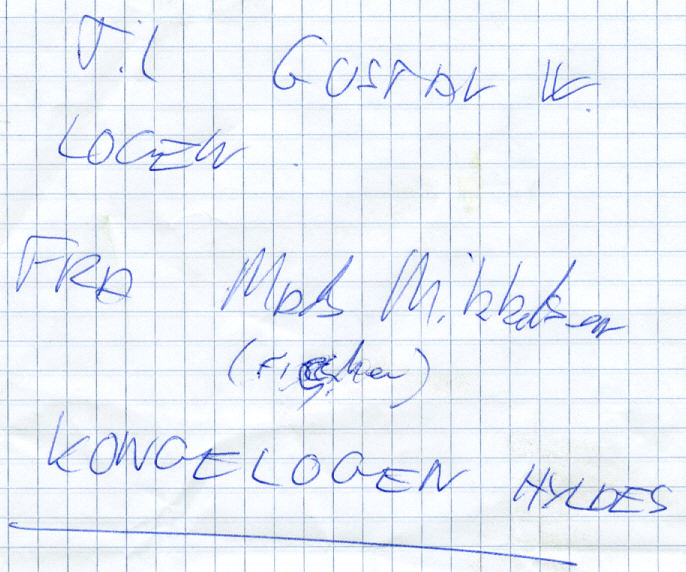 Til GUSTAV W.
LOGEN.
FRA Mads Mikkelsen
(Fisker)
KONGELOGEN HYLDES